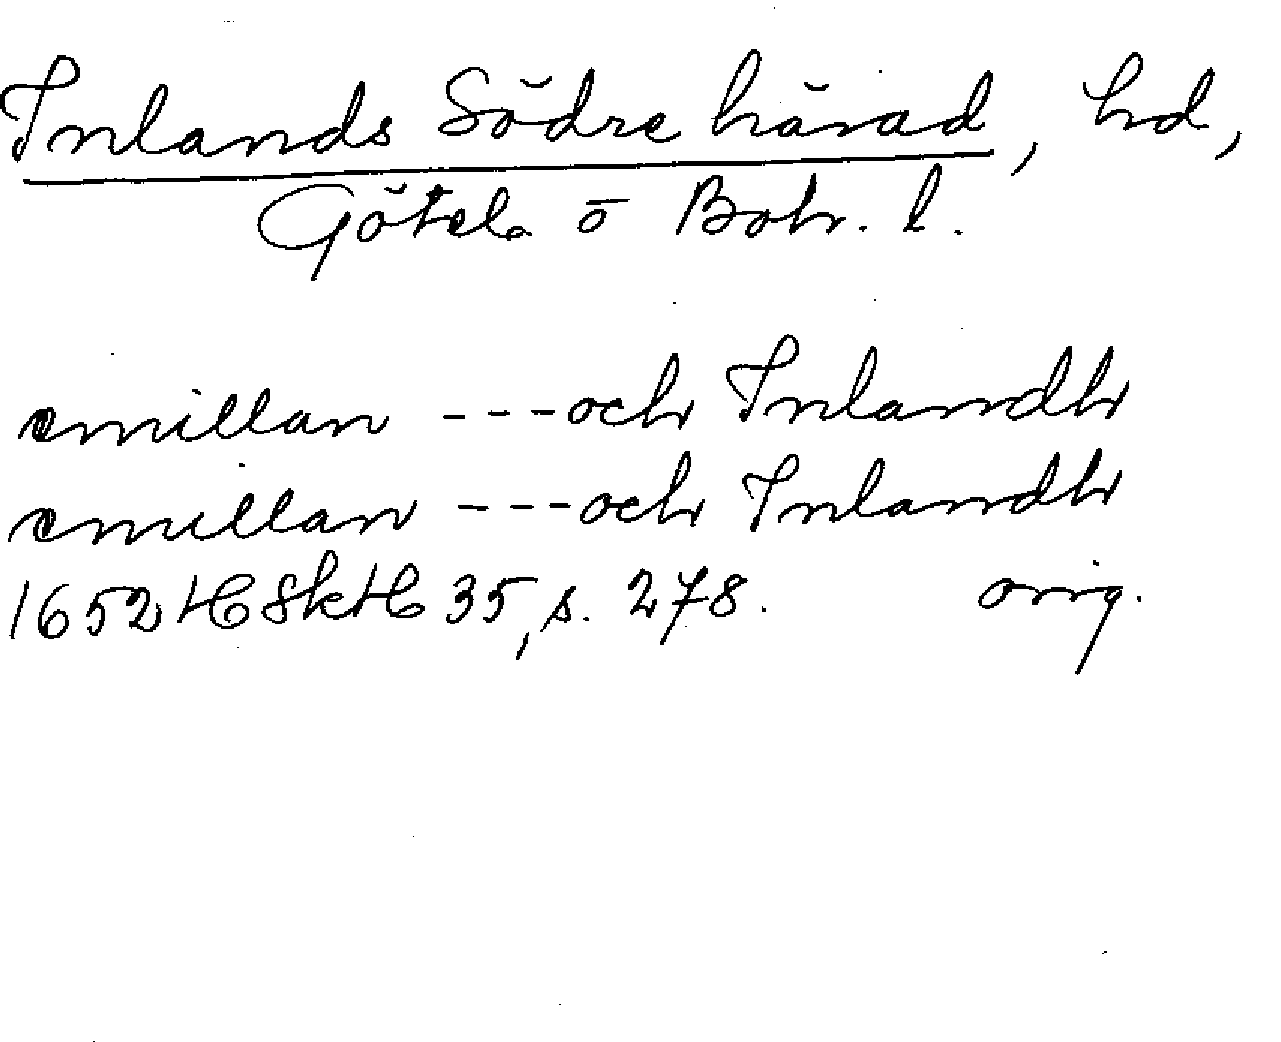 Inlands Södre härad, hd,
Göteb. ö Boh. l.
emillan ---och Inlandh
emillan ---och Inlandh
1652 HSkH 35, s. 278. orig.